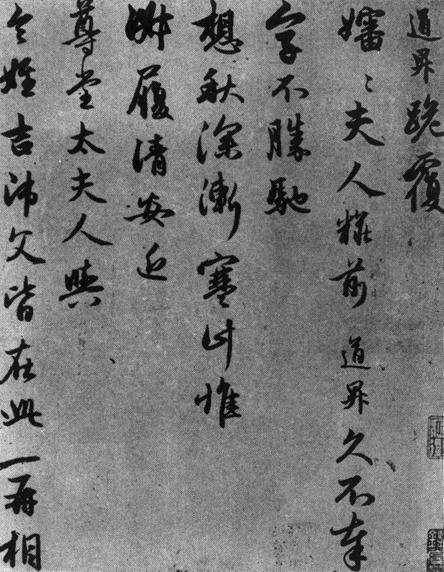 道昇跪覆
嬸々夫人粧前道昇久不奉
字不勝馳
想秋深漸寒計惟
淑履清安近
尊堂太夫人與
令姪吉師父皆在此一再相